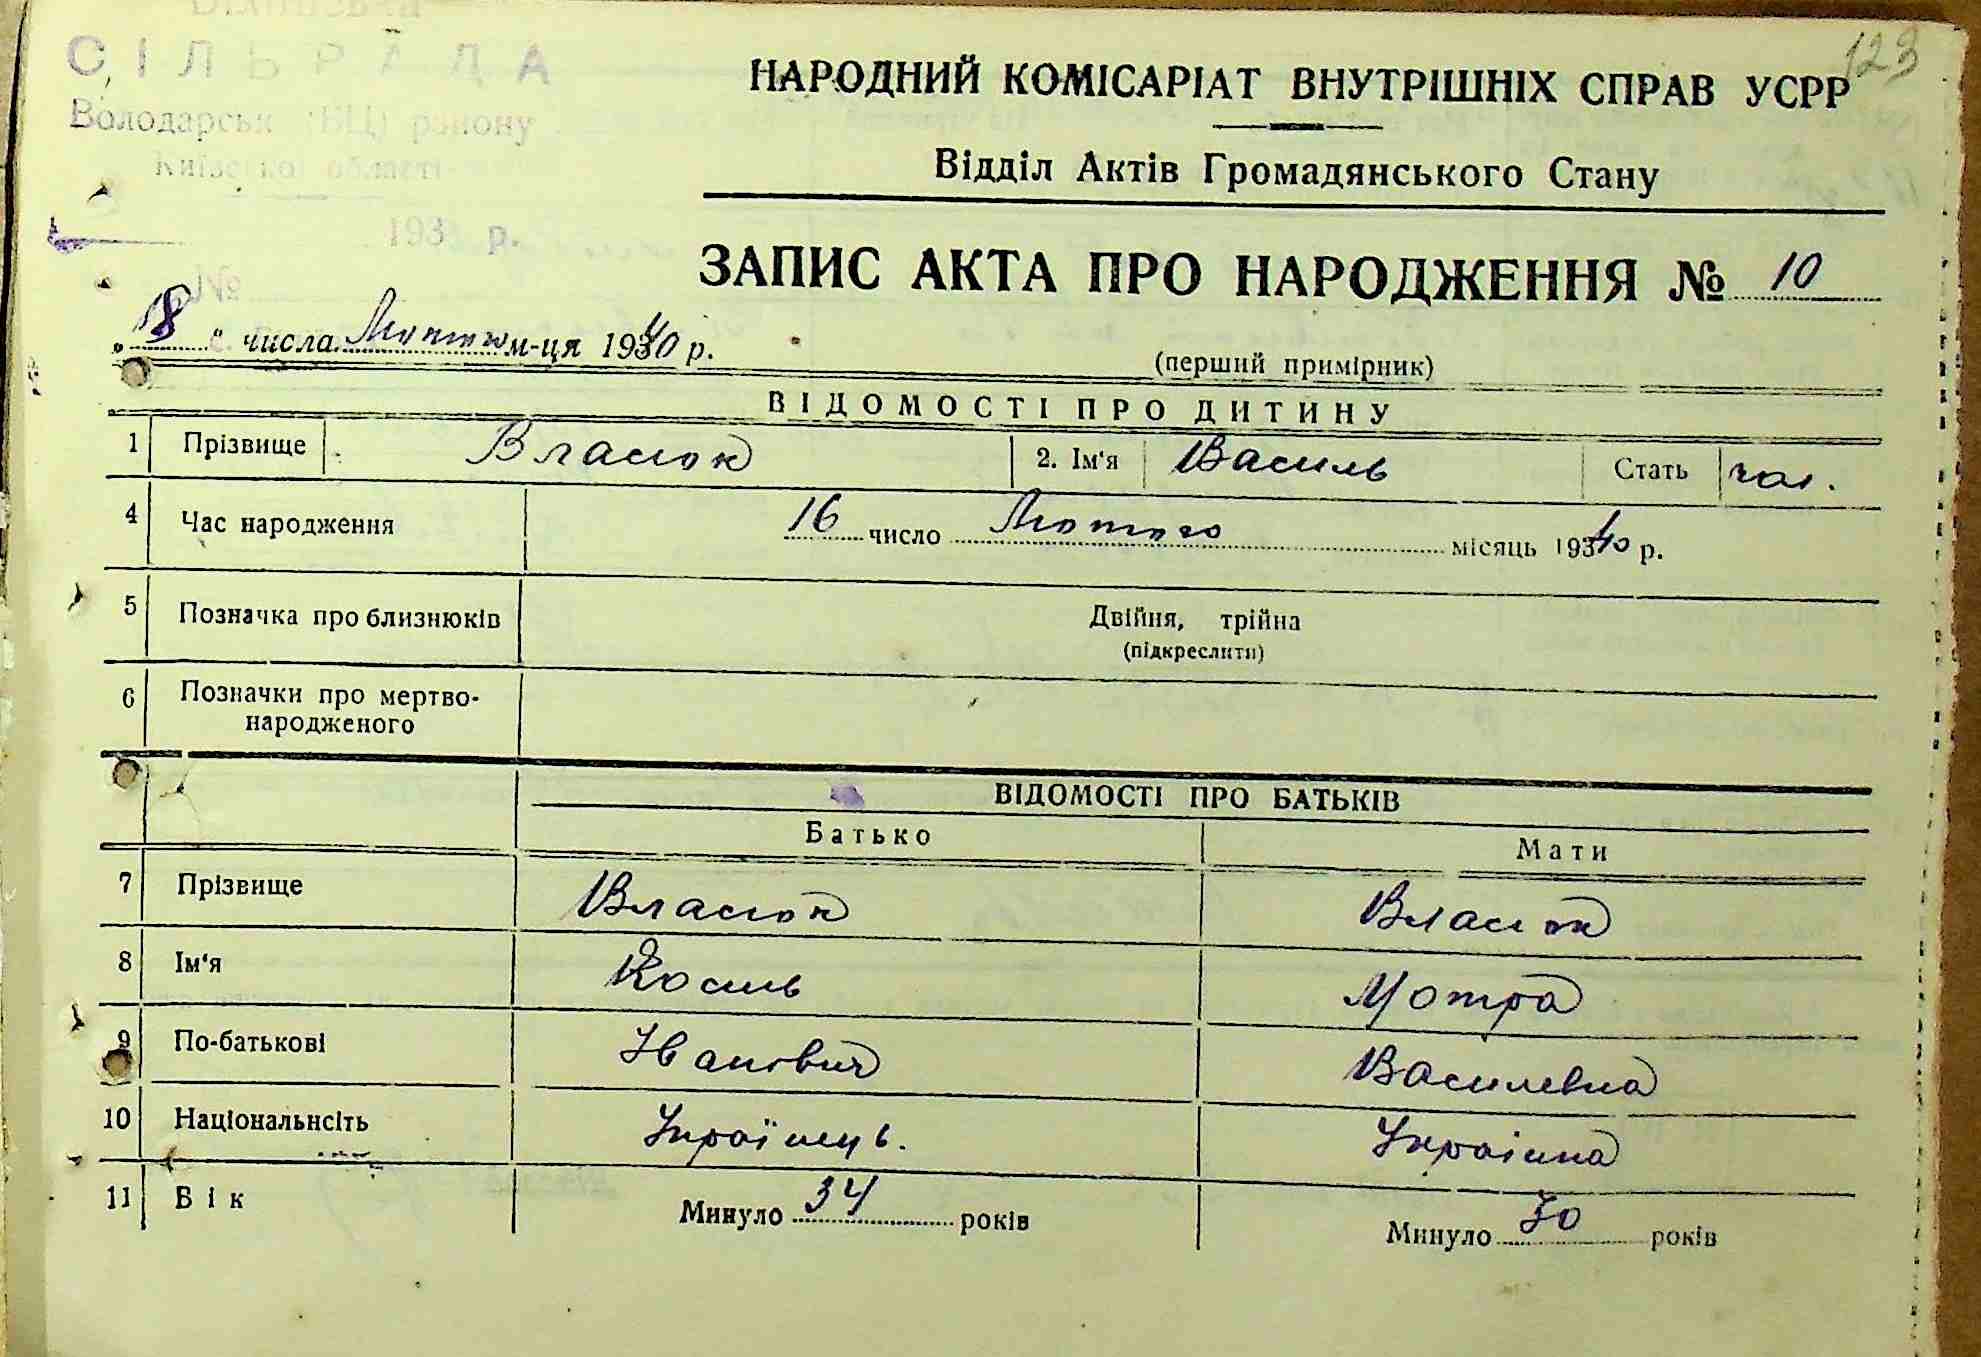 СІЛЬРАДА
Володарськ (БЦ) району
Київської області
193 р.
№
123
НАРОДНИЙ КОМІСАРІАТ ВНУТРІШНІХ СПРАВ УСРР
Відділ Актів Громадянського Стану
ЗАПИС АКТА ПРО НАРОДЖЕННЯ № 10
„18“ числа Лютого м-ця 1940 р.
(перший примірник)
ВІДОМОСТІ ПРО ДИТИНУ
1 Прізвище Власюк 2. Ім'я Василь Стать чол.
4 Час народження 16 число Лютого місяць 1940 р.
5 Позначка про близнюків Двійня, трійна
(підкреслити)
6 Позначки про мертво-
народженого
ВІДОМОСТІ ПРО БАТЬКІВ
Батько Мати
7 Прізвище Власюк Власюк
8 Ім'я Йосиль Мотра
9 По-батькові Іванович Василевна
10 Національнсіть Українець. Українка
11 Вік Минуло 34 років Минуло 30 років